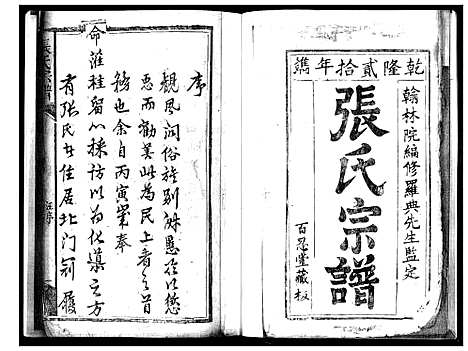 乾隆貳拾年鐫
翰林院編修羅典先生監定
張氏宗譜
百忍堂藏板
序
觀風问俗旌別淑慝所以懲
惡而勸美此為民上者之首
務也余自丙寅叢奉
命淮桂留心採訪以為化導之方
有張氏世住居北门剣履
張氏宗譜